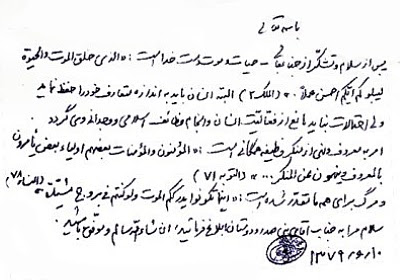 باسمه تعالی
پس از سلام و تشکر از جنابعالی - حیات و موت بدست خداست: «الذی خلق الموت والحیوة
لیبلوکم ایکم احسن عملاً.» (الملک ۲) البته انسان باید به اندازه متعارف خود را حفظ نماید
ولی احتمالات نباید مانع از فعالیت انسان و انجام وظائف اسلامی و وجدانی وی گردد
امر به معروف و نهی از منکر وظیفه همگانی است: «المؤمنون والمؤمنات بعضهم اولیاء بعض یأمرون
بالمعروف وینهون عن المنکر...» (التوبه ۷۱)
و مرگ برای همه مقدر شده است: «اینما تکونوا یدرککم الموت ولو کنتم فی بروج مشیّدة» (النساء ۷۸)
سلام مرا به جناب آقای و دوستان ابلاغ فرمائید. ان شاءالله سالم و موفق باشید.
۱۳۷۹/۶/۱۰